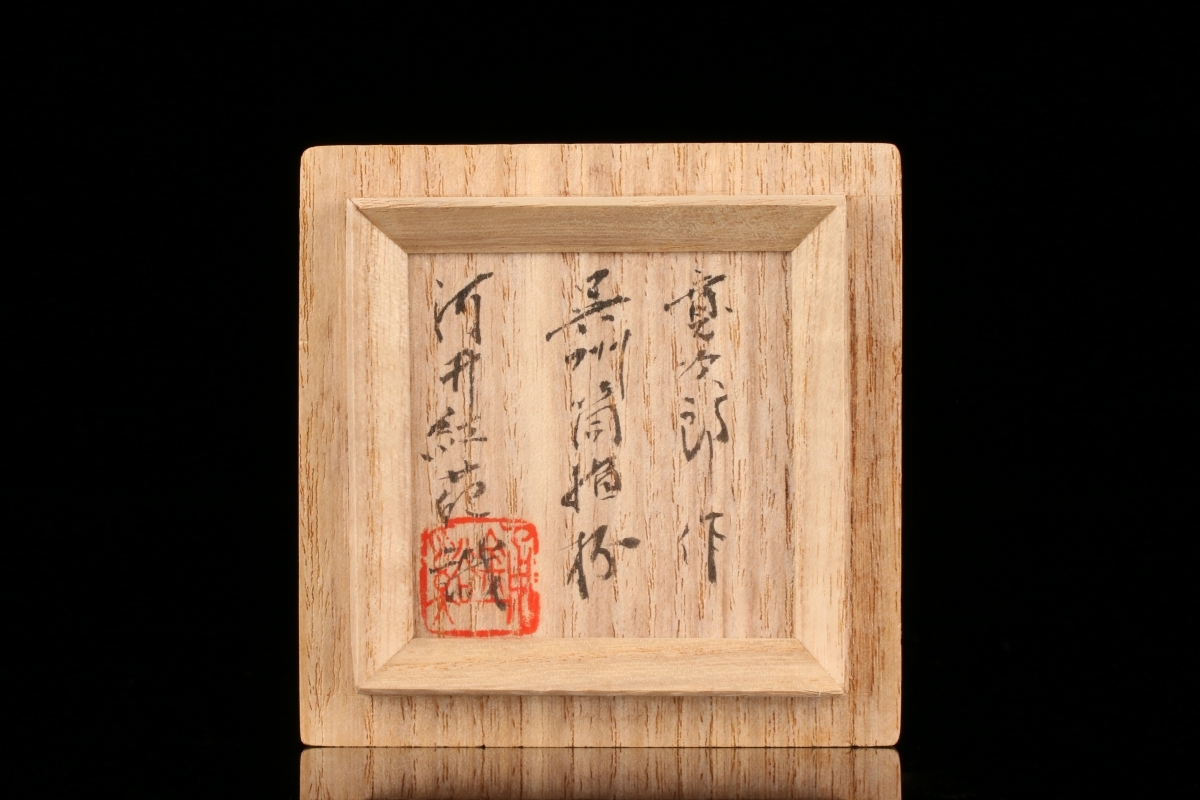 寛次郎 作
呉州筒描杯
河井紅葩識